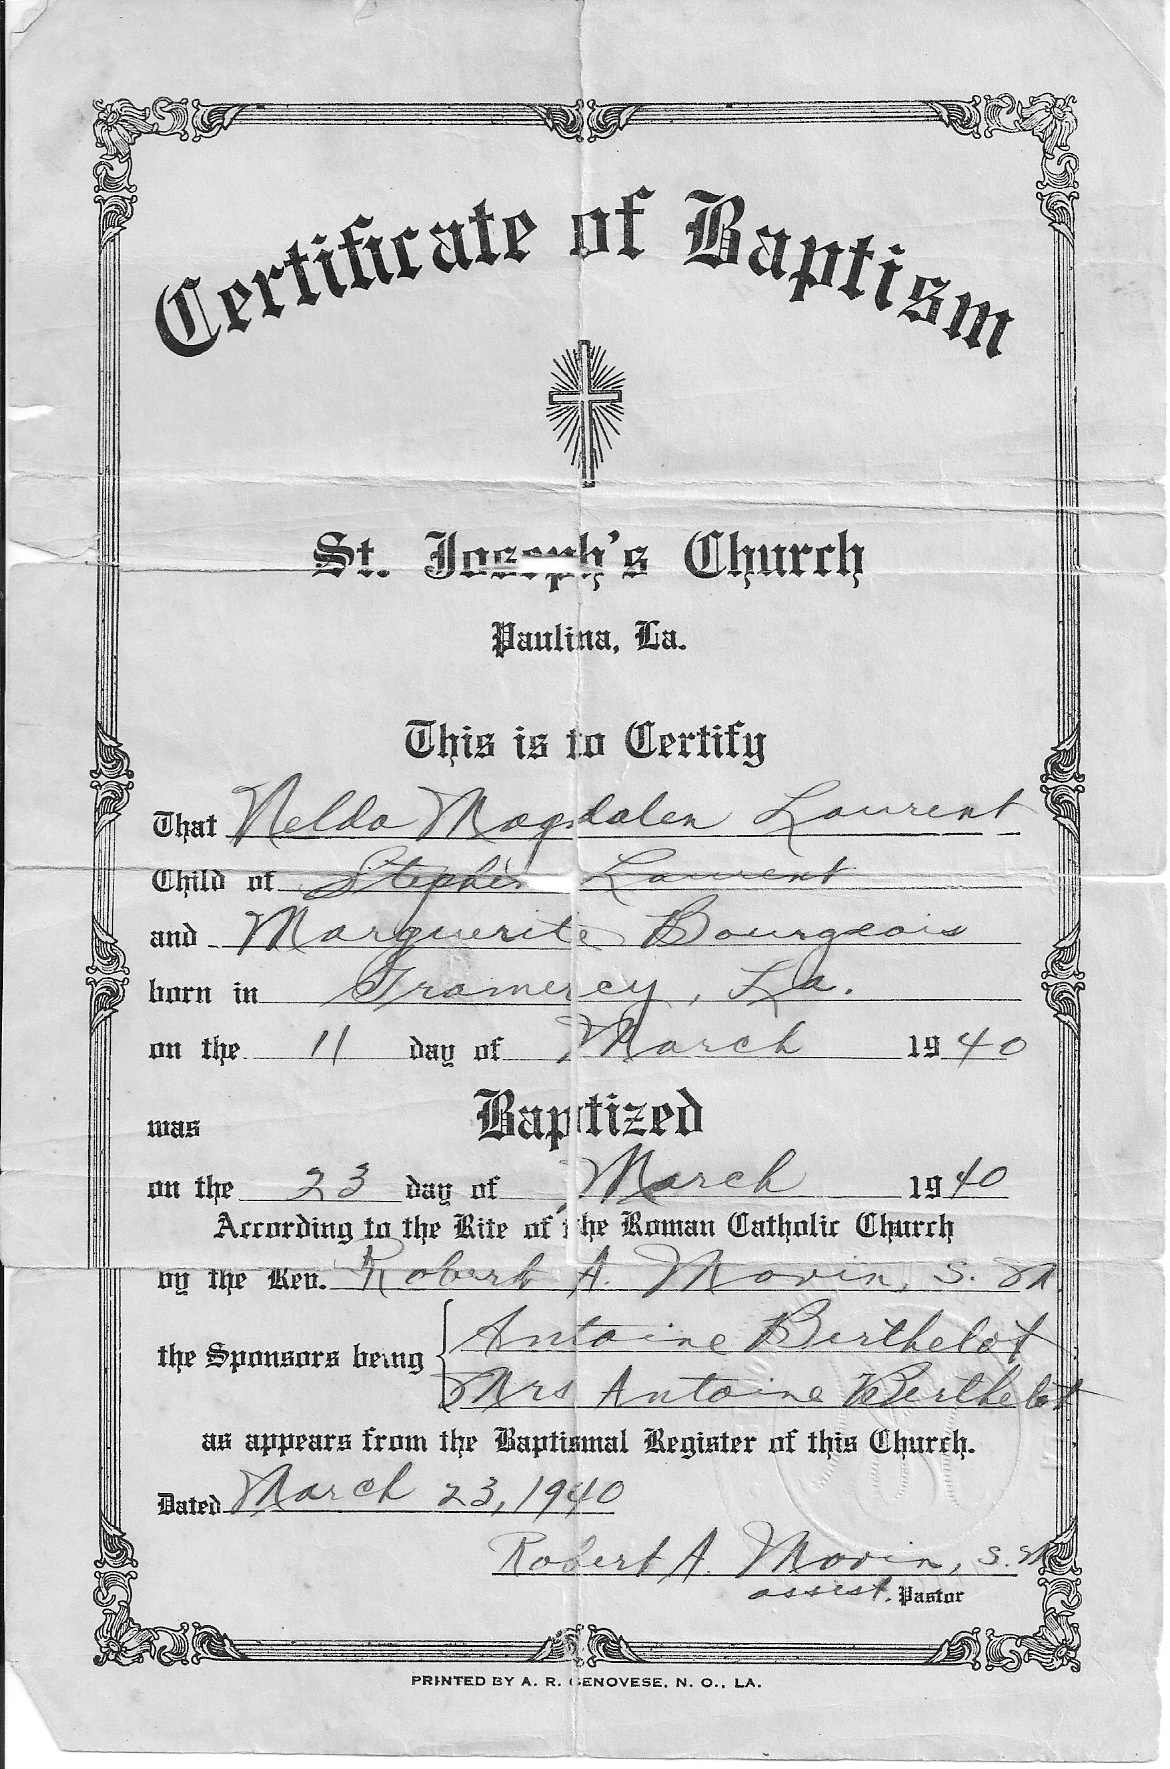 Certificate of Baptism
St. Joseph's Church
Paulina, La.
This is to Certify
That Nelda Magdalen Laurent
Child of Stephen Laurent
and Marguerite Bourgeois
born in Gramercy, La.
on the 11 day of March 1940
was Baptized
on the 23 day of March 1940
According to the Rite of the Roman Catholic Church
by the Rev. Robert A. Morin, S. M.
the Sponsors being Antoine Berthelot
Mrs Antoine Berthelot
as appears from the Baptismal Register of this Church.
Dated March 23, 1940
Robert A. Morin, S. M
assist. Pastor
PRINTED BY A. R. GENOVESE, N. O., LA.